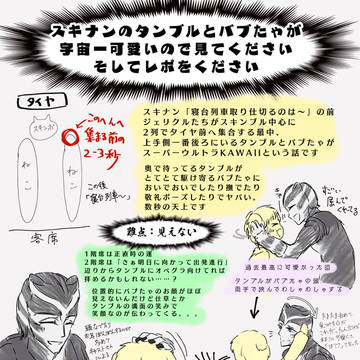 スキナンのタンブルとバブたゃが
宇宙一可愛いので見てください
そしてレポをください
タイヤ
スキンブ
ねこ
ねこ
客席
このへんへ
集まる前の
2~3秒
この後
「寝台列車~」
スキナン「寝台列車取り仕切るのは~」の前
ジェリクルたちがスキンブル中心に
2列でタイヤ前へ集合する最中、
上手側一番後ろにいるタンブルとバブたゃが
スーパーウルトラKAWAIIという話です
奥で待ってるタンブルが
とてとて駆け寄るバブたゃに
おいでおいでしたり撫でたり
敬礼ポーズしたりでヤバい。
数秒の天上です
難点:見えない
1階席は正直時の運
2階席は「さぁ明日に向かって出発進行」
辺りからタンブルにオペグラ向けてれば
拝めるかもしれない……?
位置的にバブたゃのお顔がほぼ
見えないんだけど仕草とか
タンブルの満面の笑みで
笑顔なのが伝わってくる、、、
過去最高に可愛かった回
タンブルがバブたゃの頭
両手で挟んでわしゃわしゃする